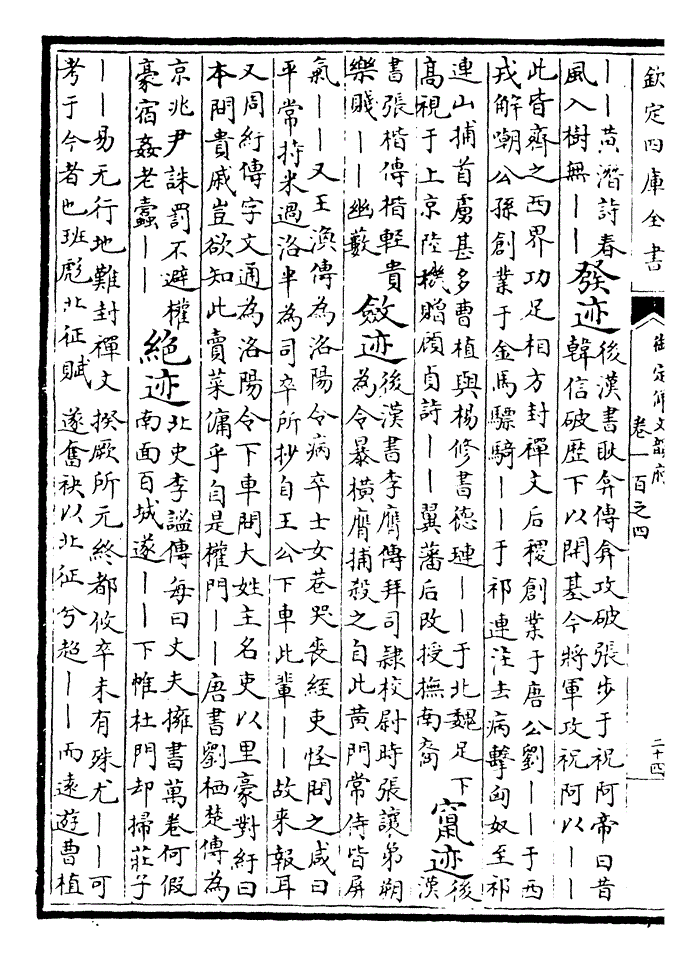 欽定四庫全書
御定佩文韻府
卷一百之四
二十四
——黄溍詩春
風入樹無——
發迹
後漢書耿弇傳弇攻破張步于祝阿帝曰昔
韓信破歴下以開基今將軍攻祝阿以——
此皆齊之西界功足相方封禪文后稷創業于唐公劉——于西
戎解嘲公孫創業于金馬驃騎——于祁連注去病擊匈奴至祁
連山捕首虜甚多曹植與楊修書德璉——于北魏足下
高視于上京陸機贈顔貞詩——翼藩后改授撫南裔
竄迹
後
漢
書張楷傳楷輕貴
樂賤——幽藪
斂迹
後漢書李膺傳拜司隷校尉時張讓弟朔
為令暴横膺捕殺之自此黄門常侍皆屏
氣——又王渙傳為洛陽令病卒士女巷哭喪經吏怪問之咸曰
平常持米過洛半為司卒所抄自王公下車此輩——故来報耳
又周紆傳字文通為洛陽令下車問大姓主名吏以里豪對紆曰
本問貴戚豈欲知此賣菜傭乎自是權門——唐書劉栖楚傳為
京兆尹誅罰不避權
豪宿姦老蠹——
絶迹
北史李謐傳每曰丈夫擁書萬卷何假
南面百城遂——下帷杜門却掃莊子
——易无行地難封禪文揆厥所元終都攸卒未有殊尤——可
考于今者也班彪北征賦遂奮袂以北征兮超——而遠遊曹植